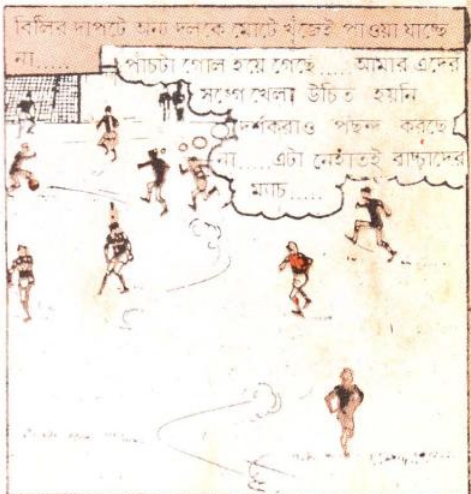 বিলির দাপটে অন্য দলকে মোটে খুঁজেই পাওয়া যাচ্ছে
না.....
পাঁচটা গোল হয়ে গেছে..... আমার এদের
সঙ্গে খেলা উচিত হয়নি
দর্শকরাও পছন্দ করছে
না.....এটা নেহাতই বাচ্চাদের
ম্যাচ.....